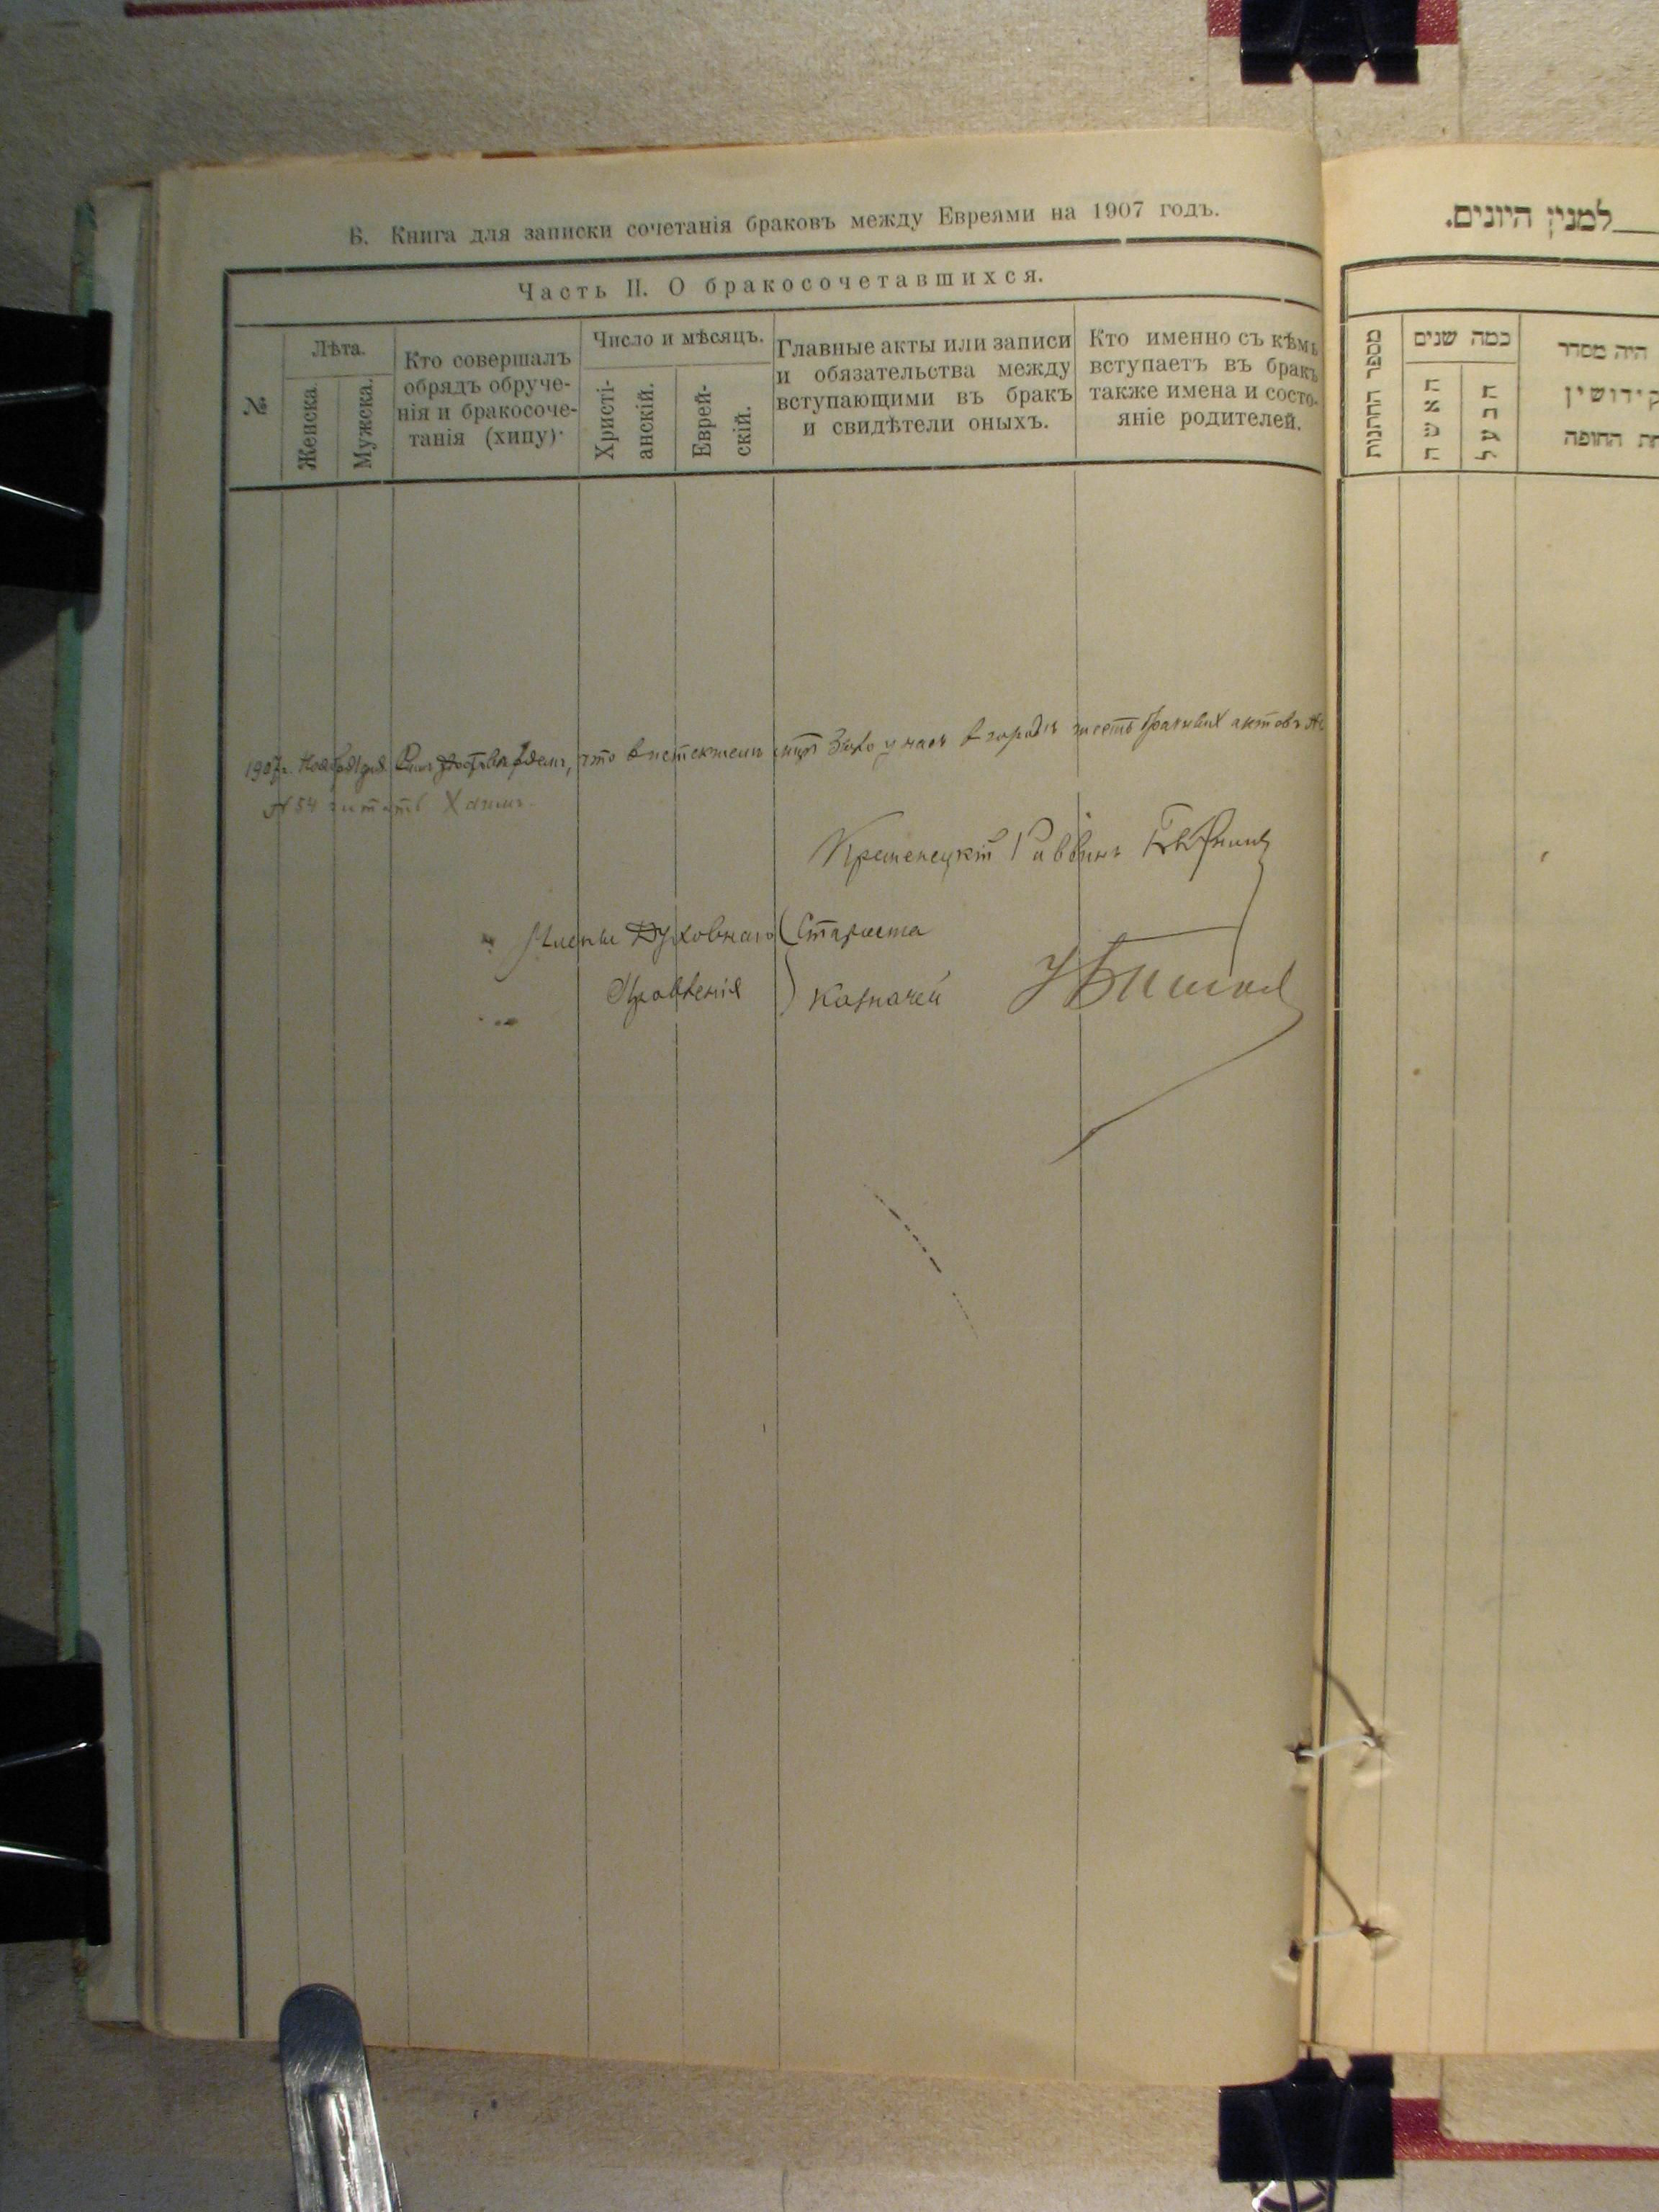 Б. Книга для записки сочетанія браковъ между Евреями на 1907 годъ.
Часть II. О бракосочетавшихся.
№
Лѣта.
Женска.
Мужска.
Кто совершалъ
обрядъ обруче-
нія и бракосоче-
танія (хипу)
Число и мѣсяцъ.
Христі-
анскій.
Еврей-
скій.
Главные акты или записи
и обязательства между
вступающими въ бракъ
и свидѣтели оныхъ.
Кто именно съ кѣмъ
вступаетъ въ бракъ
также имена и состо-
яніе родителей.
1907г. Ноября 1 дня. Симъ что в истекшемъ было у насъ в городѣ шесть брачныхъ актовъ
№ 54 читать Хаимъ.
Кременецкій Раввинъ
Члены Духовнаго Староста
Правленія Казначей
למנין היונים.
מספר החתנות
כמה שנים
האשה
הבעל
היה מסדר
קידושין
החופה